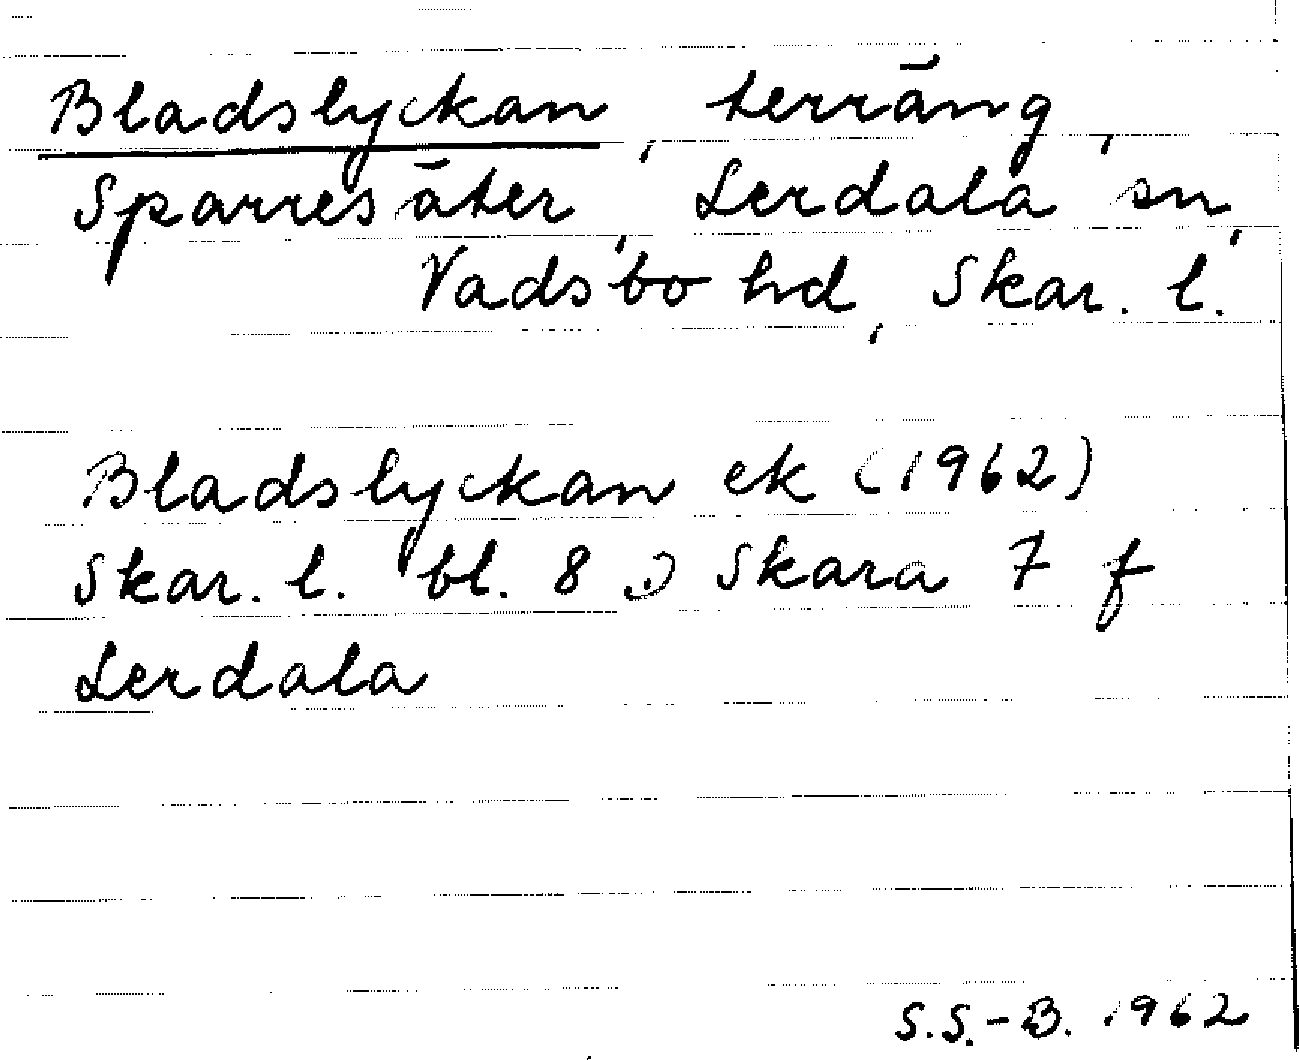 Bladslyckan, terräng,
Sparresäter, Lerdala sn,
Vadsbo hd, Skar. l.
Bladslyckan ek (1962)
Skar. l. bl. 8 Skara 7 f
Lerdala
S.S.-B. 1962